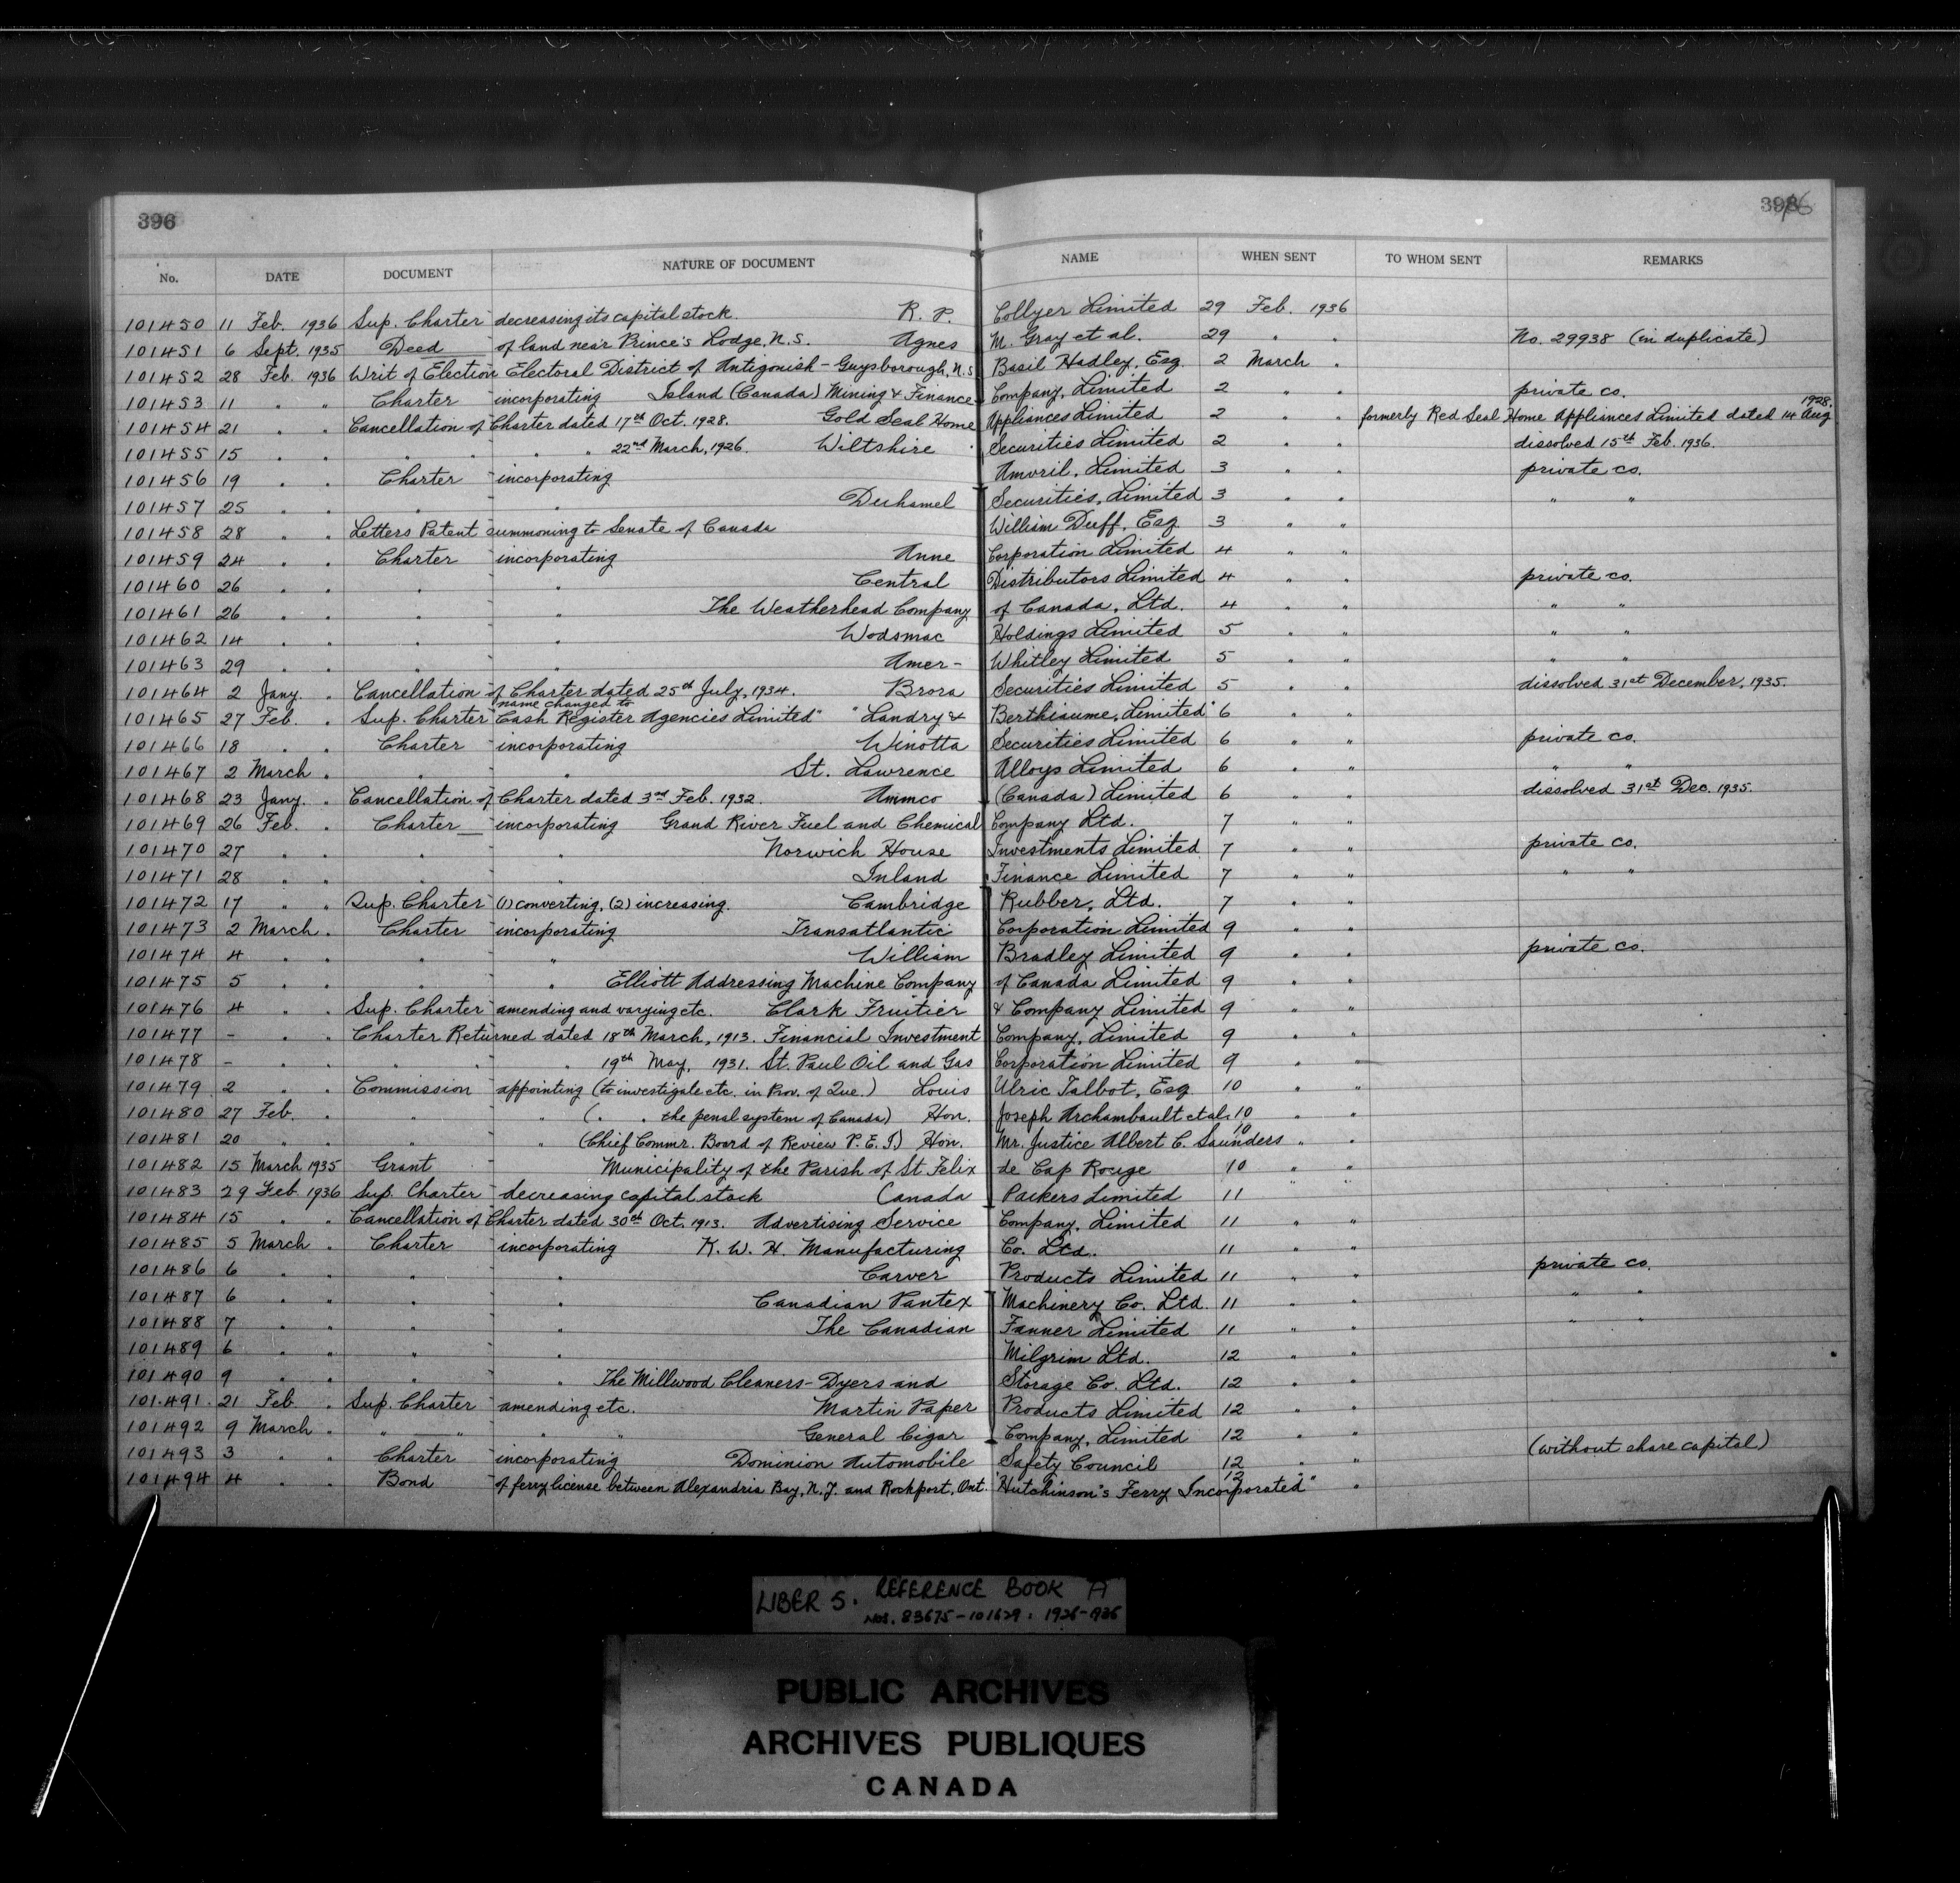 396
396
No. DATE DOCUMENT NATURE OF DOCUMENT NAME WHEN SENT TO WHOM SENT REMARKS
101450 11 Feb. 1936 Sup. Charter decreasing its capital stock. R. P. Collyer Limited 29 Feb. 1936
101451 6 Sept. 1935 Deed of land near Prince's Lodge, N.S. Agnes M. Gray et al. 29 " " No. 29938 (in duplicate)
101452 28 Feb. 1936 Writ of Election Electoral District of Antigonish - Guysborough, N.S. Basil Hadley, Esq. 2 March "
101453 11 " " Charter incorporating Island (Canada) Mining & Finance Company, Limited 2 " " private co.
101454 21 " " Cancellation of Charter dated 17th Oct. 1928. Gold Seal Home Appliances Limited 2 " " formerly Red Seal Home Appliances Limited dated 14 Aug 1928.
101455 15 " " " " " " 22nd March, 1926. Wiltshire Securities Limited 2 " " dissolved 15th Feb. 1936.
101456 19 " " Charter incorporating Amoril, Limited 3 " " private co.
101457 25 " " " " Duhamel Securities, Limited 3 " " " "
101458 28 " " Letters Patent summoning to Senate of Canada William Duff, Esq. 3 " "
101459 24 " " Charter incorporating Anne Corporation Limited 4 " "
101460 26 " " " " Central Distributors Limited 4 " " private co.
101461 26 " " " " The Weatherhead Company of Canada, Ltd. 4 " " " "
101462 14 " " " " Wodsmac Holdings Limited 5 " " " "
101463 29 " " " " Amer- Whitley Limited 5 " " " "
101464 2 Jany. " Cancellation of Charter dated 25th July, 1934. Brora Securities Limited 5 " " dissolved 31st December, 1935.
101465 27 Feb. " Sup. Charter name changed to "Cash Register Agencies Limited" "Landry & Berthiaume, Limited" 6 " "
101466 18 " " Charter incorporating Winotta Securities Limited 6 " " private co.
101467 2 March " " " St. Lawrence Alloys Limited 6 " " " "
101468 23 Jany. " Cancellation of Charter dated 3rd Feb. 1932. Ammco (Canada) Limited 6 " " dissolved 31st Dec. 1935.
101469 26 Feb. " Charter incorporating Grand River Fuel and Chemical Company Ltd. 7 " "
101470 27 " " " " Norwich House Investments Limited 7 " " private co.
101471 28 " " " " Inland Finance Limited 7 " " " "
101472 17 " " Sup. Charter (1) converting, (2) increasing. Cambridge Rubber, Ltd. 7 " "
101473 2 March " Charter incorporating Transatlantic Corporation Limited 9 " "
101474 4 " " " " William Bradley Limited 9 " " private co.
101475 5 " " " " Elliott Addressing Machine Company of Canada Limited 9 " "
101476 4 " " Sup. Charter amending and varying etc. Clark Fruitier & Company Limited 9 " "
101477 - " " Charter Returned dated 18th March, 1913. Financial Investment Company, Limited 9 " "
101478 - " " " " " 19th May, 1931. St. Paul Oil and Gas Corporation Limited 9 " "
101479 2 " " Commission appointing (to investigate etc. in Prov. of Que.) Louis Ulric Talbot, Esq. 10 " "
101480 27 Feb. " " " ( " " the penal system of Canada) Hon. Joseph Archambault et al. 10 " "
101481 20 " " " " (Chief Commr. Board of Review P. E. I.) Hon. Mr. Justice Albert C. Saunders 10 " "
101482 15 March 1935 Grant Municipality of the Parish of St Felix de Cap Rouge 10 " "
101483 29 Feb 1936 Sup. Charter decreasing capital stock Canada Packers Limited 11 " "
101484 15 " " Cancellation of Charter dated 30th Oct. 1913. Advertising Service Company, Limited 11 " "
101485 5 March " Charter incorporating K. W. H. Manufacturing Co. Ltd. 11 " "
101486 6 " " " " Carver Products Limited 11 " " private co.
101487 6 " " " " Canadian Pantex Machinery Co. Ltd. 11 " " " "
101488 7 " " " " The Canadian Fanner Limited 11 " " " "
101489 6 " " " " Milgrim Ltd. 12 " "
101490 9 " " " " The Millwood Cleaners - Dyers and Storage Co. Ltd. 12 " "
101491 21 Feb. " Sup. Charter amending etc. Martin Paper Products Limited 12 " "
101492 9 March " " " " " General Cigar Company, Limited 12 " "
101493 3 " " Charter incorporating Dominion Automobile Safety Council 12 " " (without share capital)
101494 4 " " Bond of ferry license between Alexandria Bay, N.Y. and Rockport, Ont. "Hutchinson's Ferry Incorporated" 12 " "
LIBER 5. REFERENCE BOOK A
NOS. 83675-101629: 1926-1936
PUBLIC ARCHIVES
ARCHIVES PUBLIQUES
CANADA